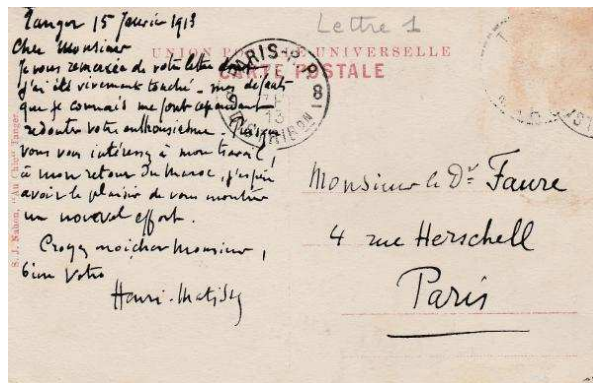 Tanger 15 Janvier 1913
Lettre 1
Cher Monsieur
UNION POSTALE UNIVERSELLE
CARTE POSTALE
Je vous remercie de votre lettre dont
j'ai été vivement touché - mes défauts
que je connais me font cependant
redouter votre enthousiasme. Puisque
vous vous intéressez à mon travail,
à mon retour du Maroc, j'espère
avoir le plaisir de vous montrer
un nouvel effort.
Croyez moi cher Monsieur,
bien votre
Henri-Matisse
PARIS
8
13
Monsieur le Dr Faure
4 rue Herschell
Paris
S. J. Nahon, "Au Chic" Tanger.